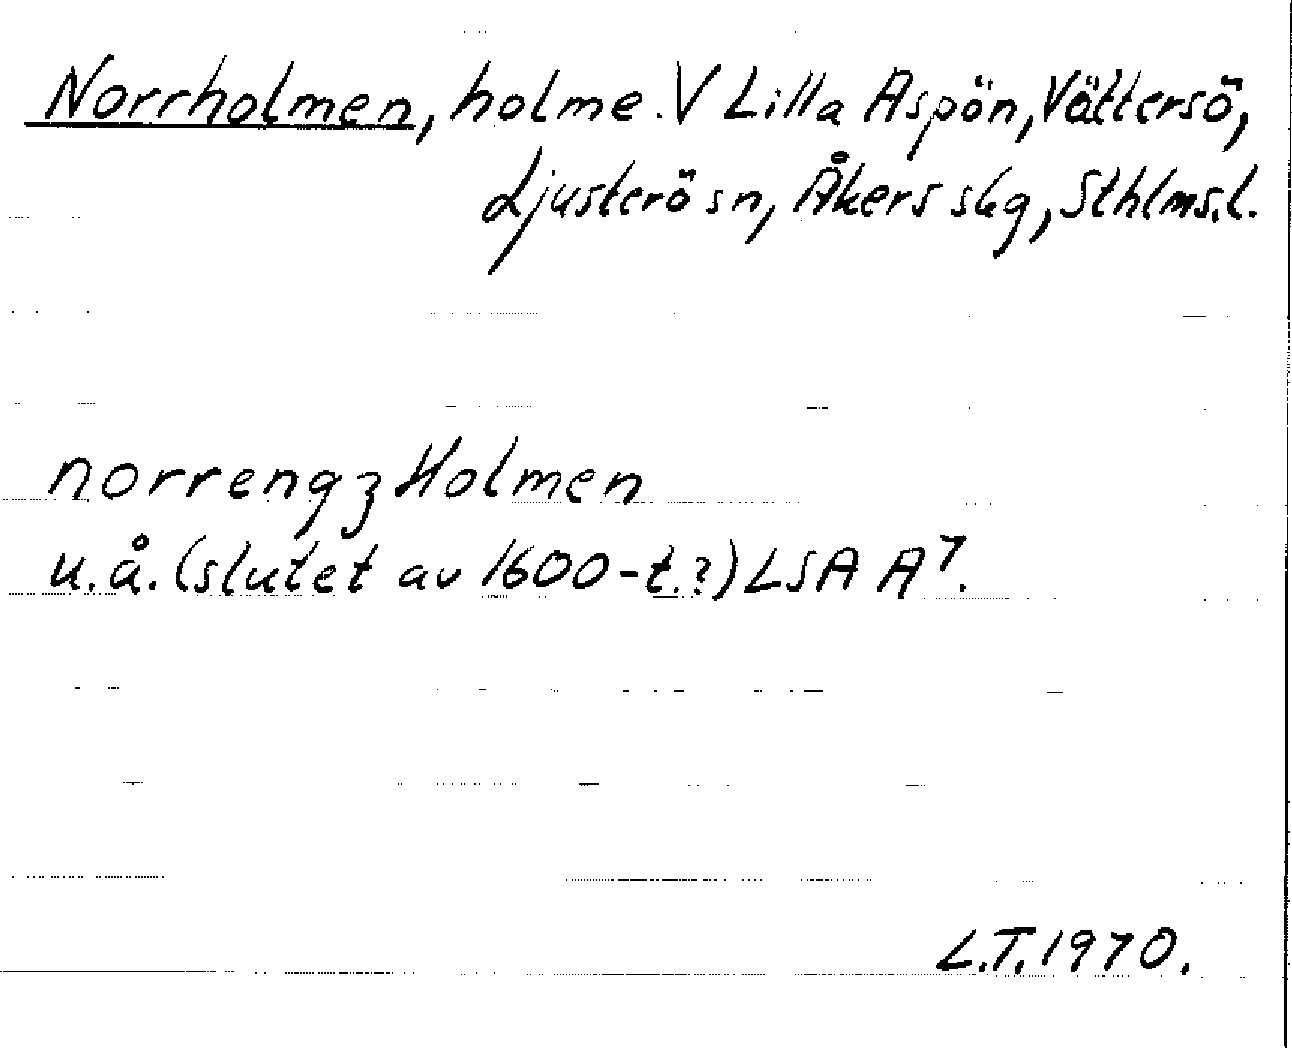 Norrholmen, holme. V Lilla Aspön, Vättersö,
Ljusterö sn, Åkers skg, Sthlms.l.
norrengzHolmen
u.å. (slutet av 1600-t.?) LSA A⁷.
L.T. 1970.